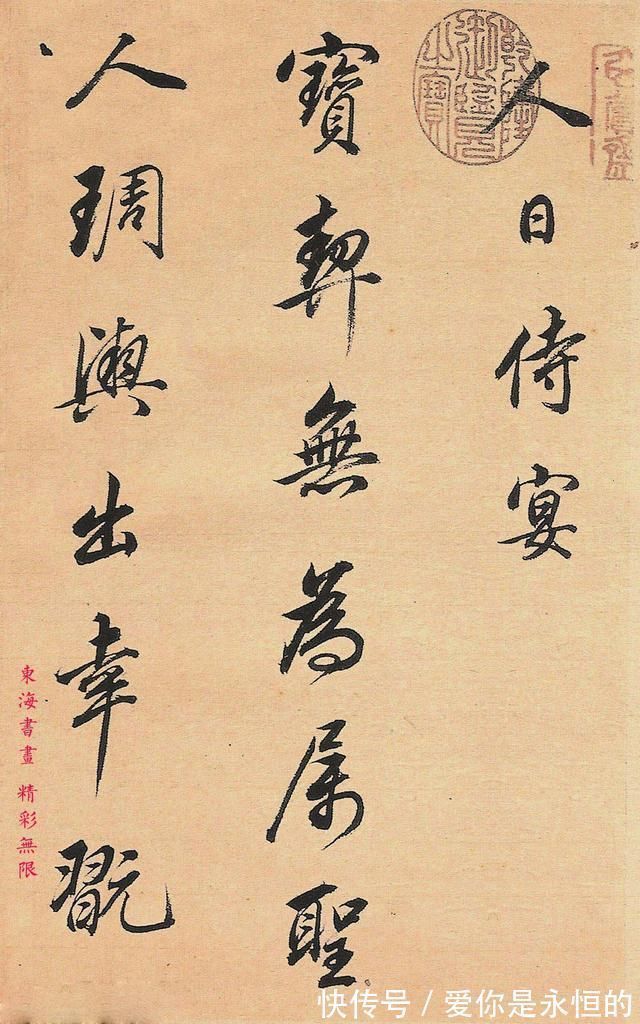 人日侍宴
寶契無為属聖
人琱輿出幸翫
東海書畫 精彩無限
快传号 / 爱你是永恒的